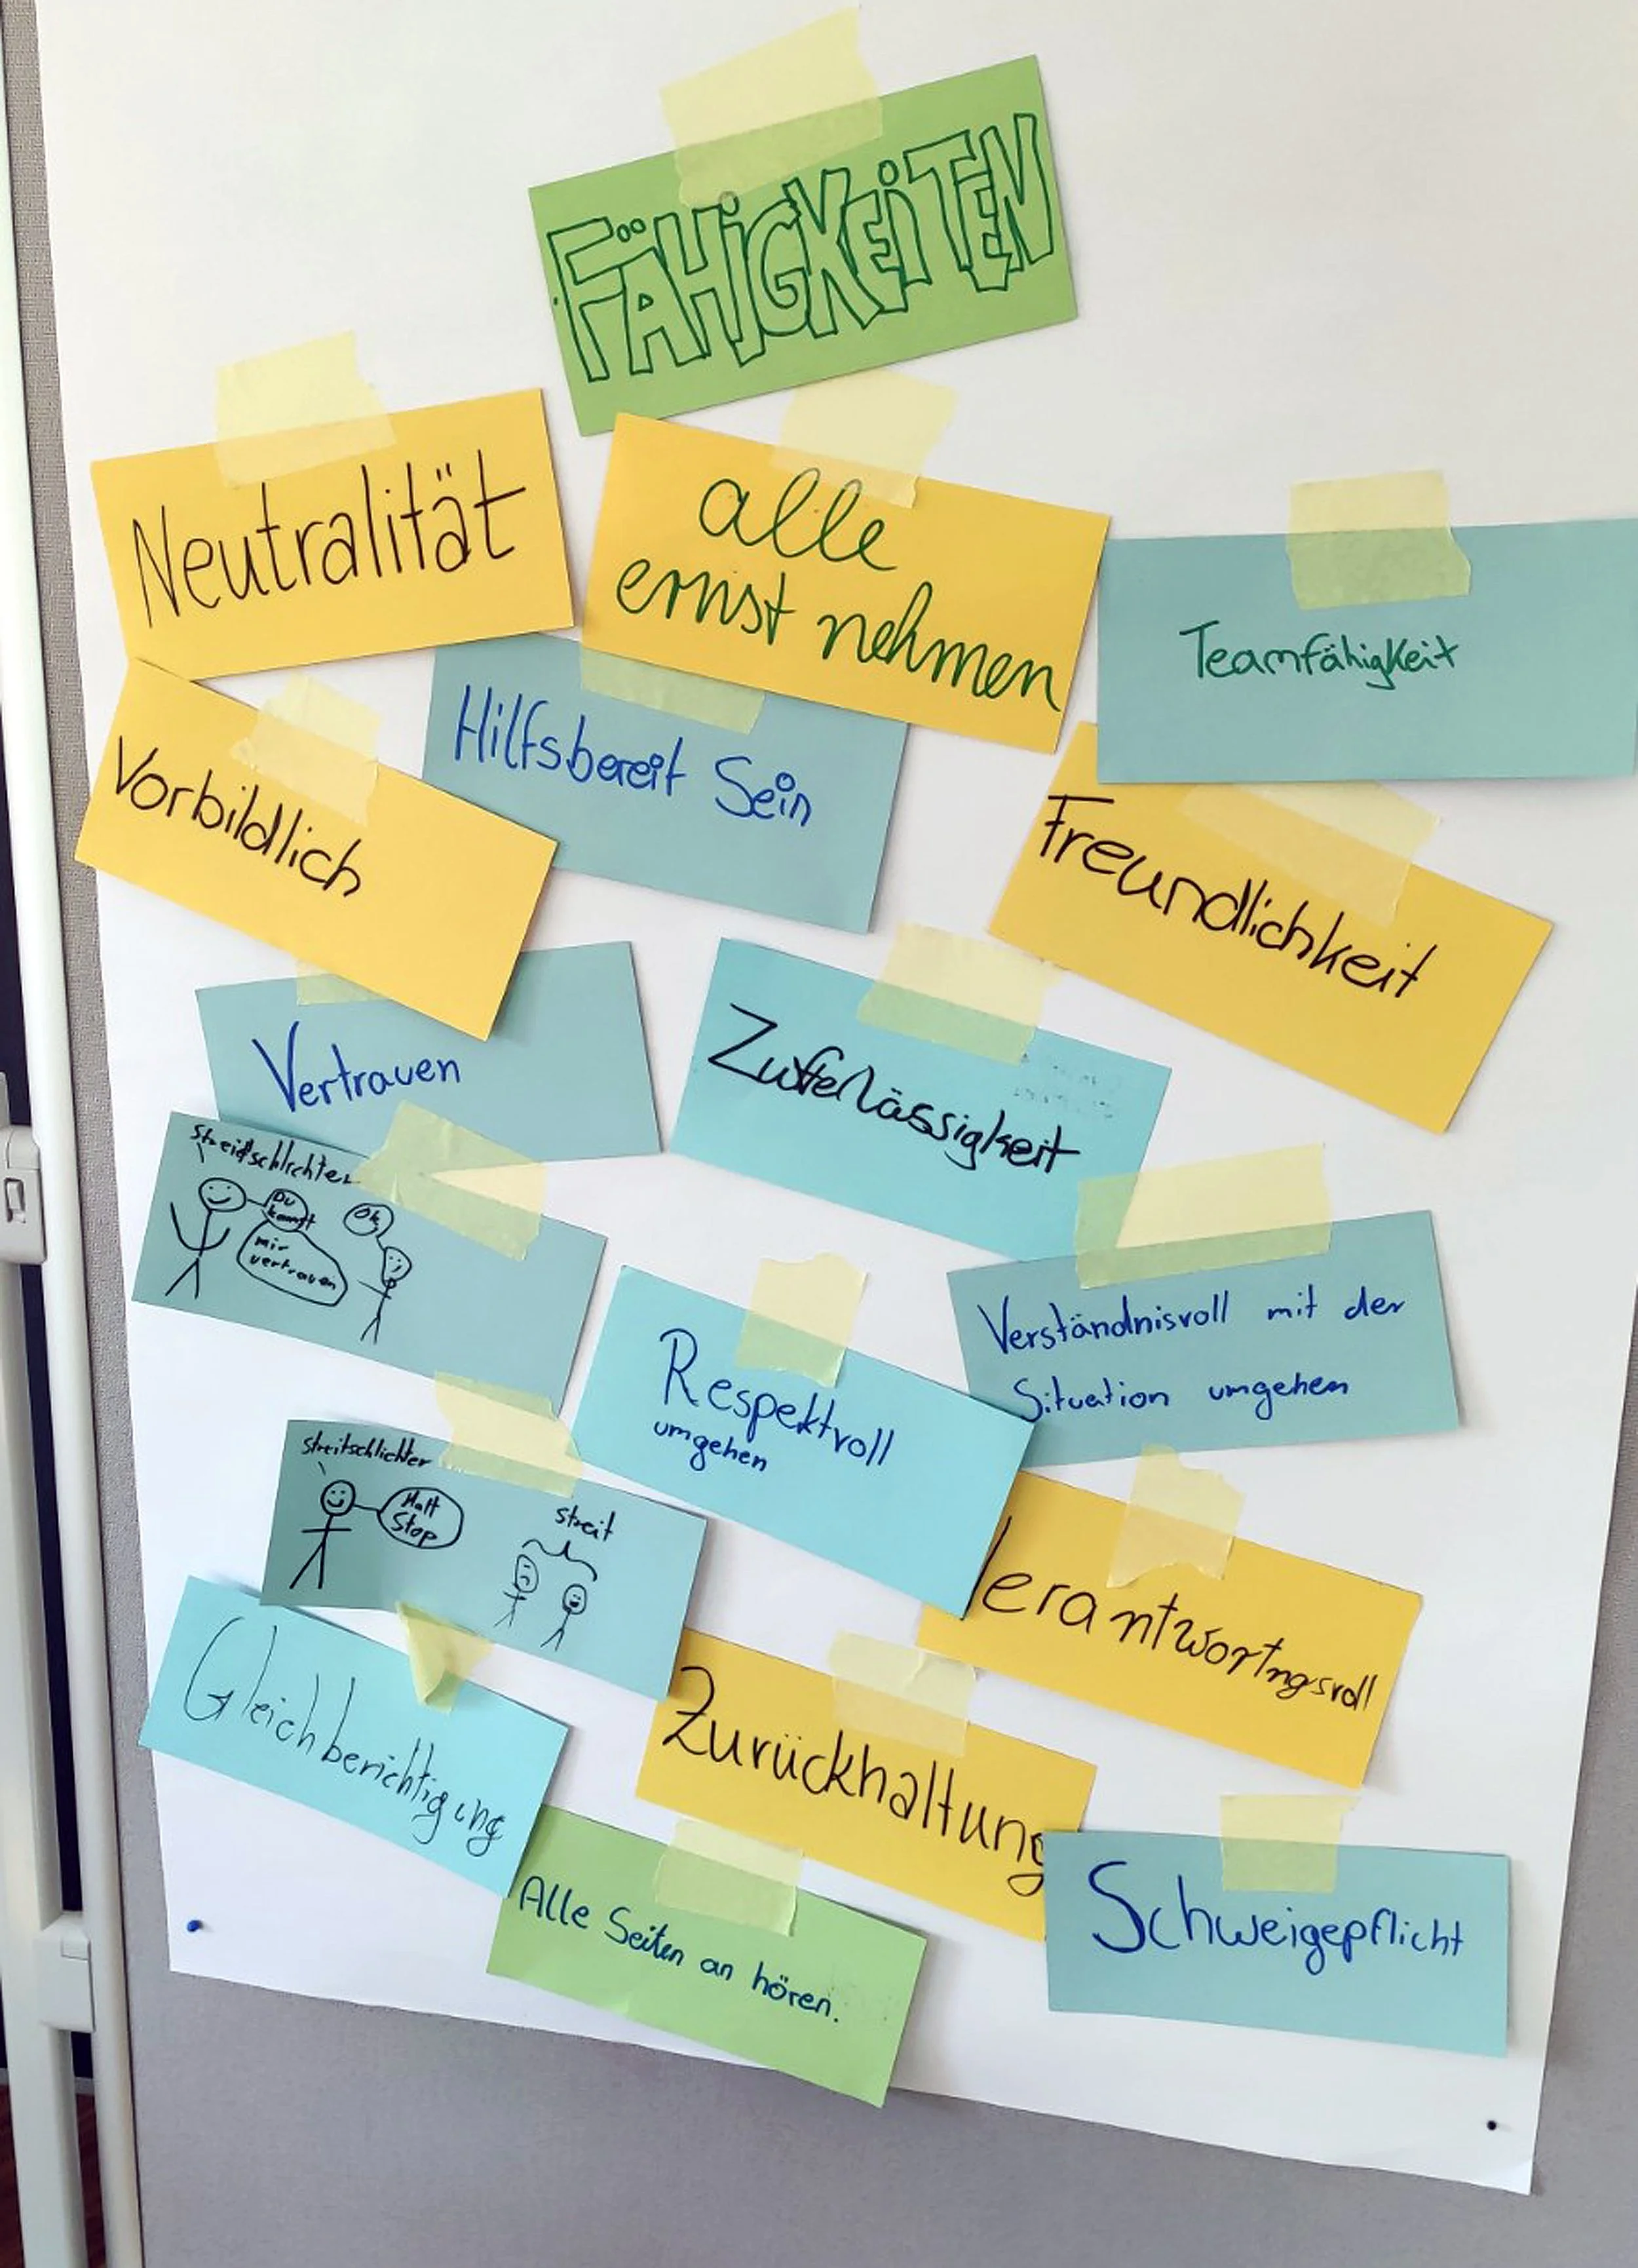 FÄHiGKEiTEN
Neutralität
alle
ernst nehmen
Teamfähigkeit
Vorbildlich
Hilfsbereit Sein
Freundlichkeit
Vertrauen
Zuferlässigkeit
Streidschlichter
Du
kannst
mir
vertrauen
Ok
Respektvoll
umgehen
Verständnisvoll mit der
Situation umgehen
Streitschlichter
Halt
Stop
Streit
Verantwortngsvoll
Gleichberichtigung
Zurückhaltung
Alle Seiten an hören.
Schweigepflicht